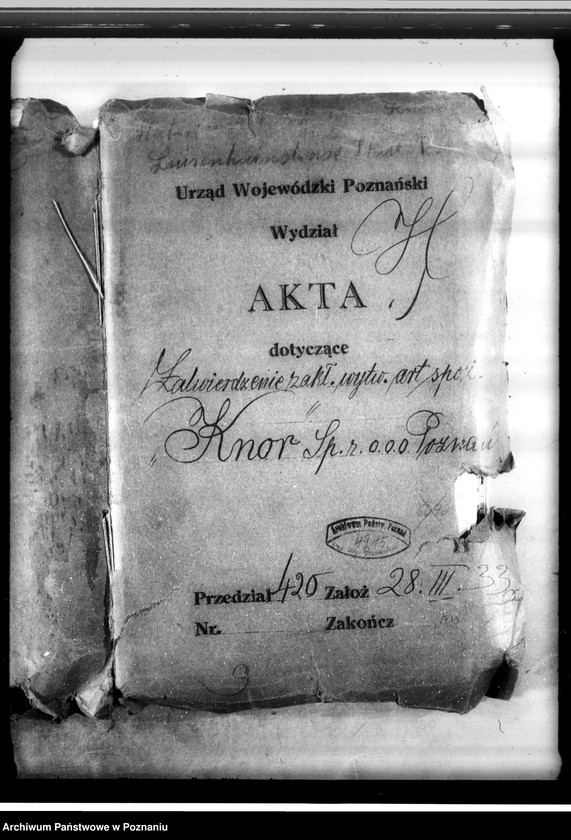 Urząd Wojewódzki Poznański
Wydział
AKTA
dotyczące
Zatwierdzenie zakł. wytw. art. spoż.
"Knor Sp. z. o.o.o. Poznań
Archiwum Państw. Poznań
4945
Przedział 420 Założ 28.III.33
Nr. Zakończ
9
Archiwum Państwowe w Poznaniu